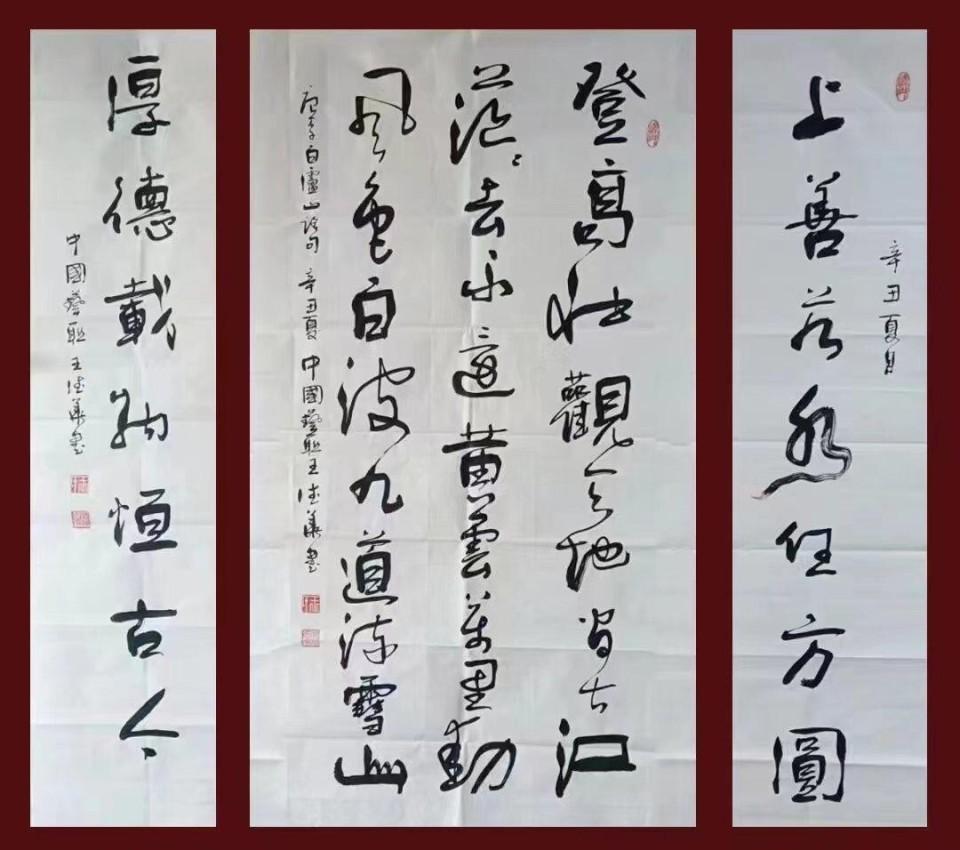 辛丑夏月
上善若水任方圓
登高壯觀天地間大江
茫〻去不還黃雲萬里動
風色白波九道流雪山
唐李白廬山謠句 辛丑夏 中國藝聯王華書
厚德載物恒古今
中國藝聯 王華書